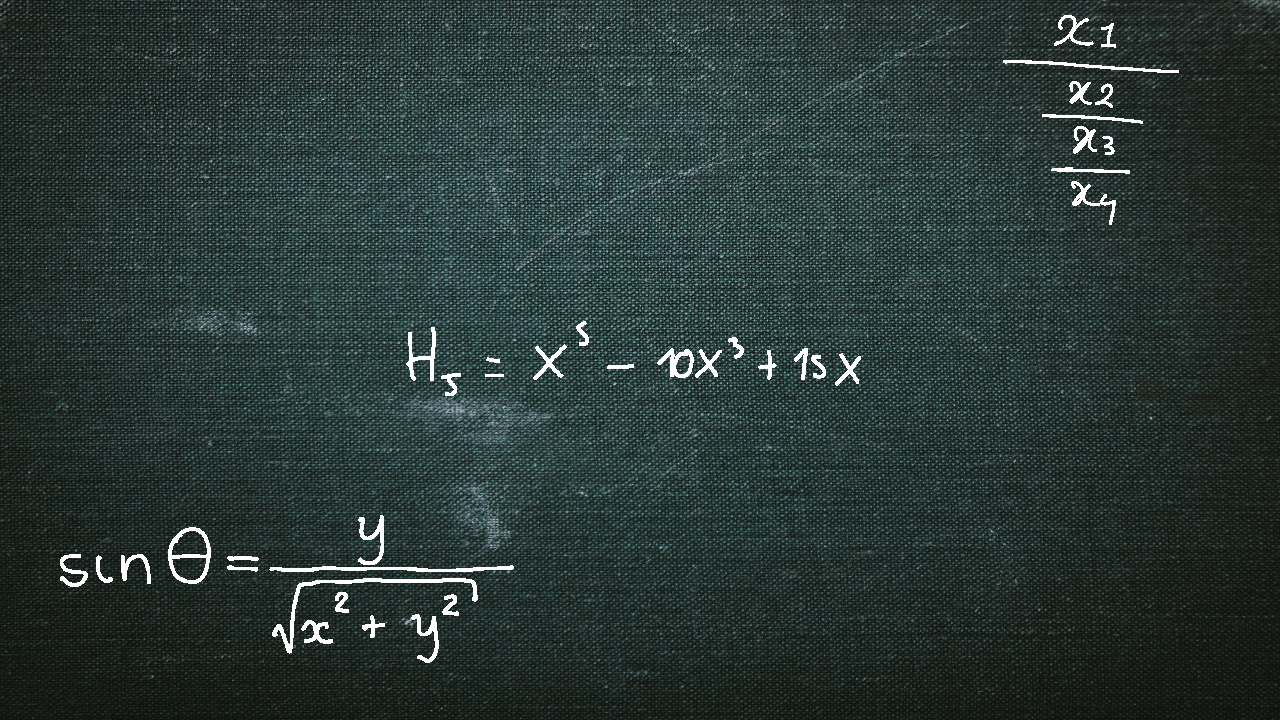 x1
x2
x3
x4
H₅ = x⁵ − 10x³ + 15x
sin θ = y / √(x² + y²)